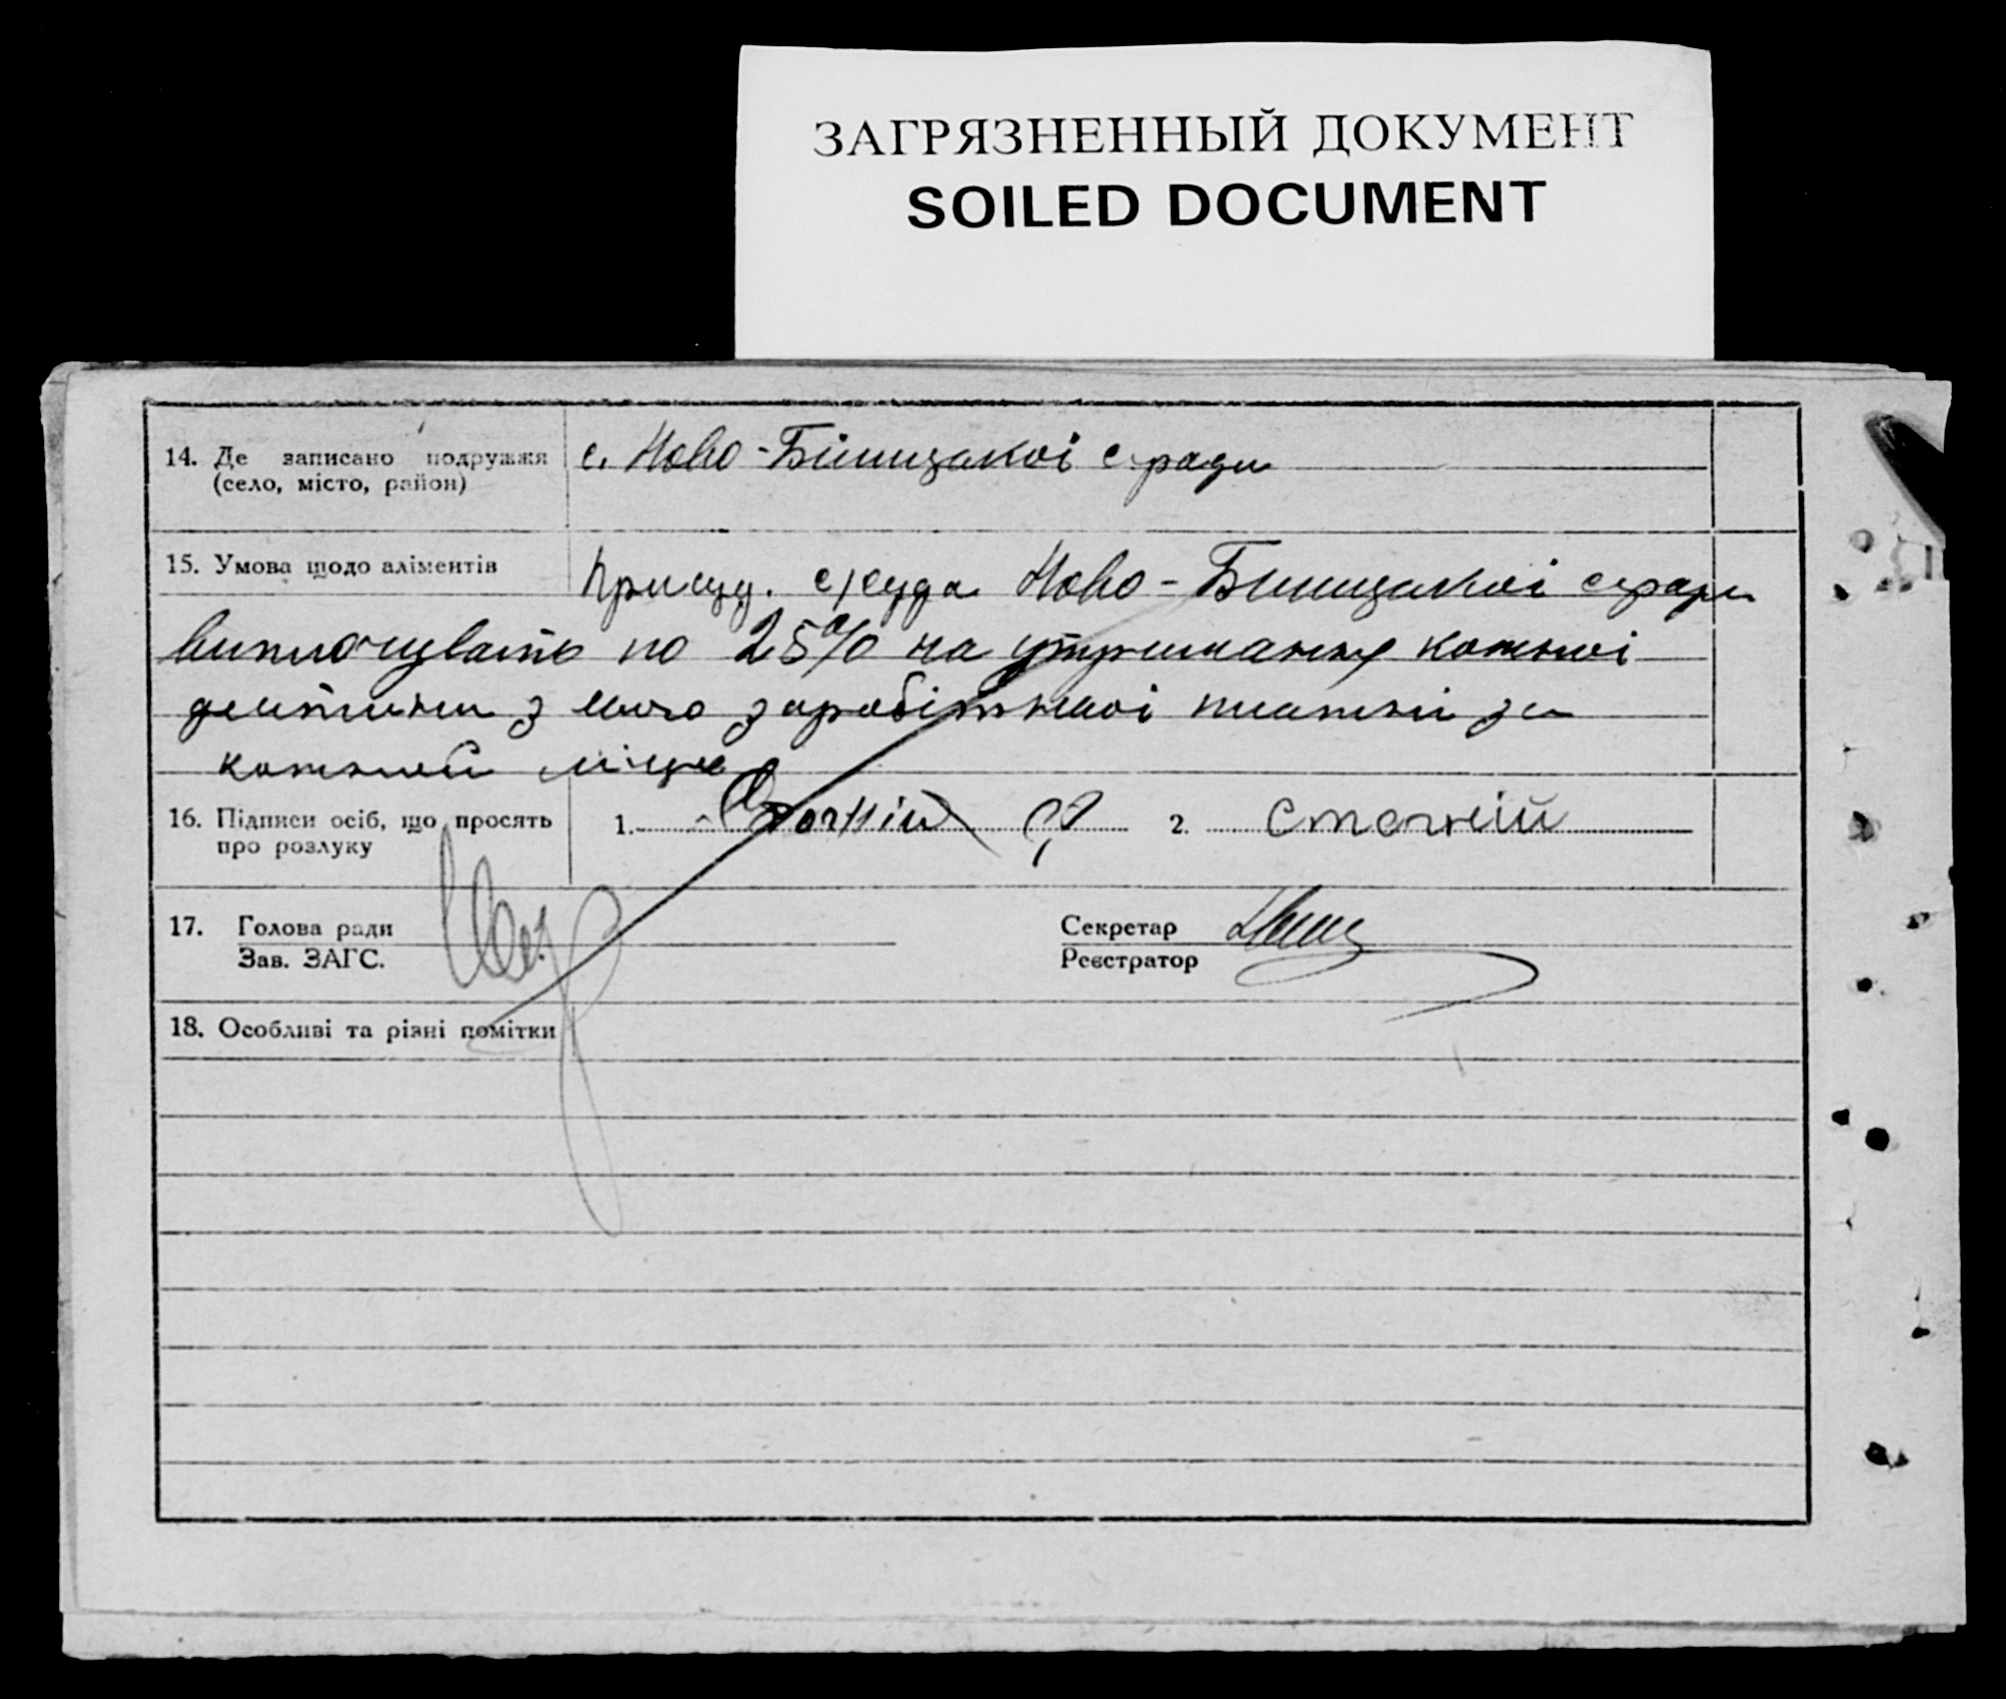 ЗАГРЯЗНЕННЫЙ ДОКУМЕНТ
SOILED DOCUMENT
14. Де записано подружжя
(село, місто, район)
с. Ново - с/ради
15. Умова щодо аліментів
Присуд. с/суда Ново - с/ради
виплочувать по 25% на утримання кожної
дитини з його заробітної платні за
кожний місяц
16. Підписи осіб, що просять
про розлуку
1.
2. Стогній
17. Голова ради
Зав. ЗАГС.
Секретар
Реєстратор
18. Особливі та різні помітки